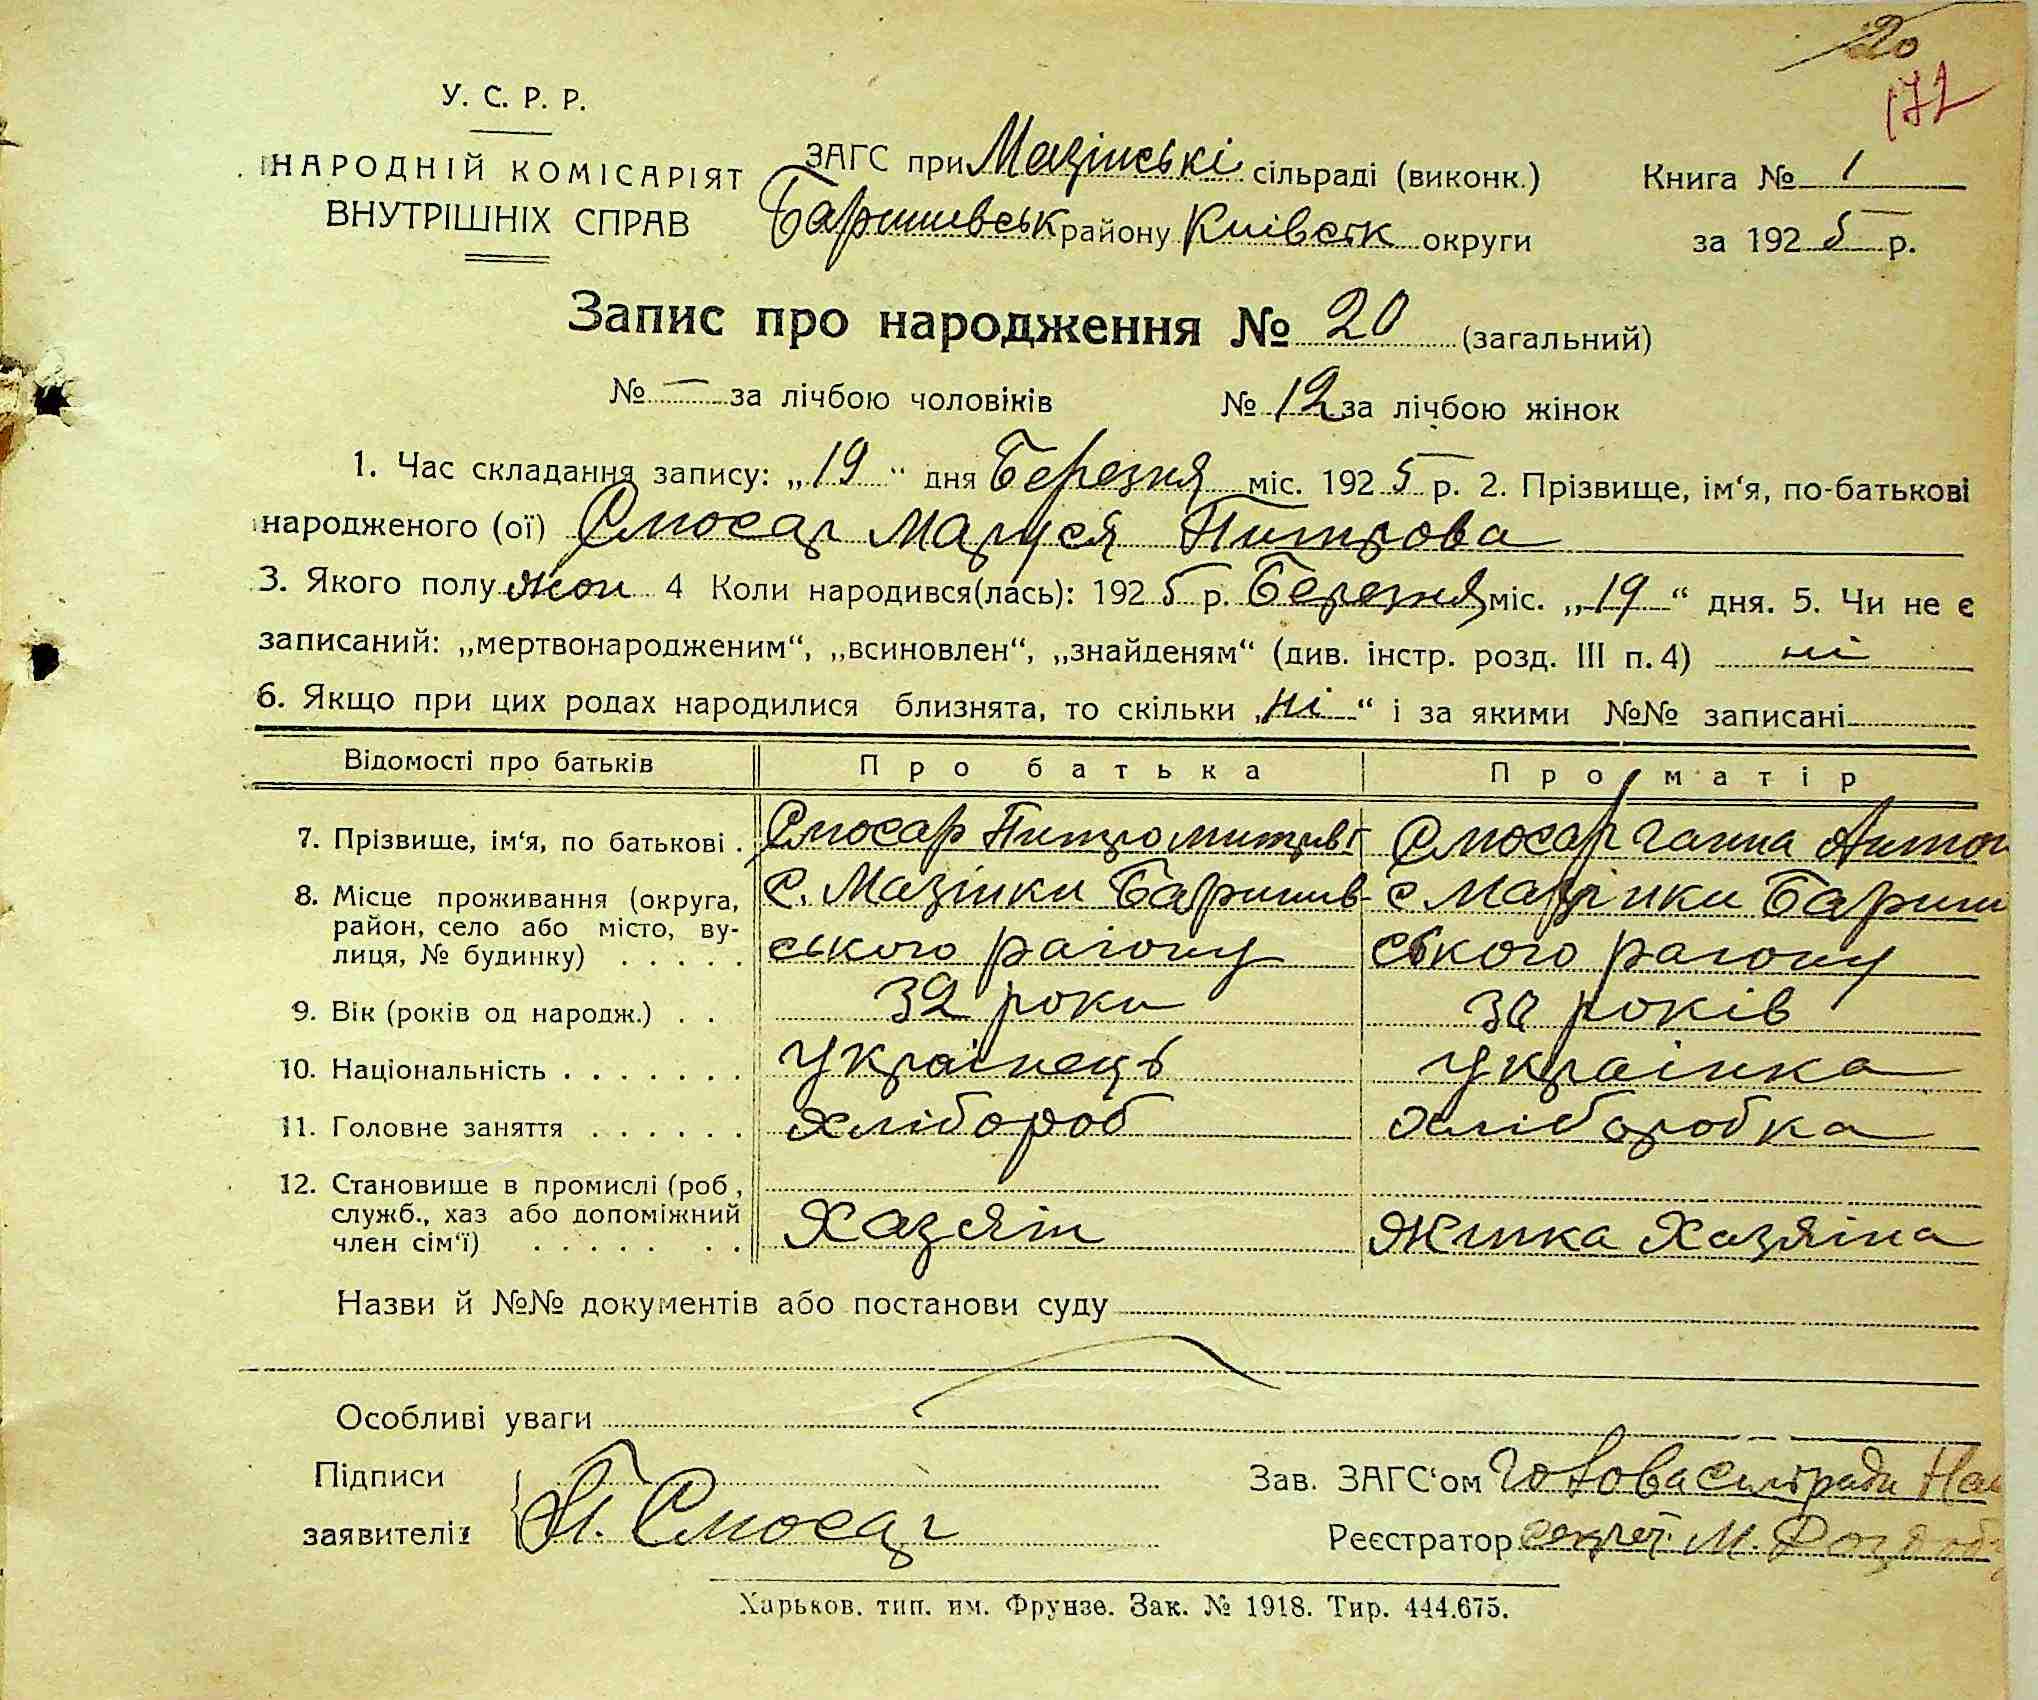 20
172
У. С. Р. Р.
НАРОДНІЙ КОМІСАРІЯТ
ВНУТРІШНІХ СПРАВ
ЗАГС при Мазінські сільраді (виконк.)
Баришевськ району Київськ округи
Книга № 1
за 1925 р.
Запис про народження № 20 (загальний)
№ — за лічбою чоловіків № 12 за лічбою жінок
1. Час складання запису: „19“ дня Березня міс. 1925 р. 2. Прізвище, ім‘я, по-батькові
народженого (ої) Слюсар Маруся Питрова
3. Якого полу жон 4 Коли народився(лась): 1925 р. Березня міс. „19“ дня. 5. Чи не є
записаний: „мертвонародженим“, „всиновлен“, „знайденям“ (див. інстр. розд. III п. 4) ні
6. Якщо при цих родах народилися близнята, то скільки „ні“ і за якими №№ записані
Відомості про батьків Про батька Про матір
7. Прізвище, ім‘я, по батькові . Слюсар Питро Митрові Слюсар Ганна Антон
8. Місце проживання (округа, район, село або місто, ву-лиця, № будинку) . . . . . с. Мазінки Баришив-ського раіону с Мазінки Бариш ського раіону
9. Вік (років од народж.) . . 32 роки 30 років
10. Національність . . . . . . . украінець украінка
11. Головне заняття . . . . . . хлібороб хліборобка
12. Становище в промислі (роб, служб., хаз або допоміжний член сім‘ї) . . . . . . . Хазяін Жинка Хазяіна
Назви й №№ документів або постанови суду
Особливі уваги
Підписи
заявителів
П. Слюсар
Зав. ЗАГС‘ом Голова Сілради
Реєстратор секрет. М.
Харьков. тип. им. Фрунзе. Зак. № 1918. Тир. 444.675.